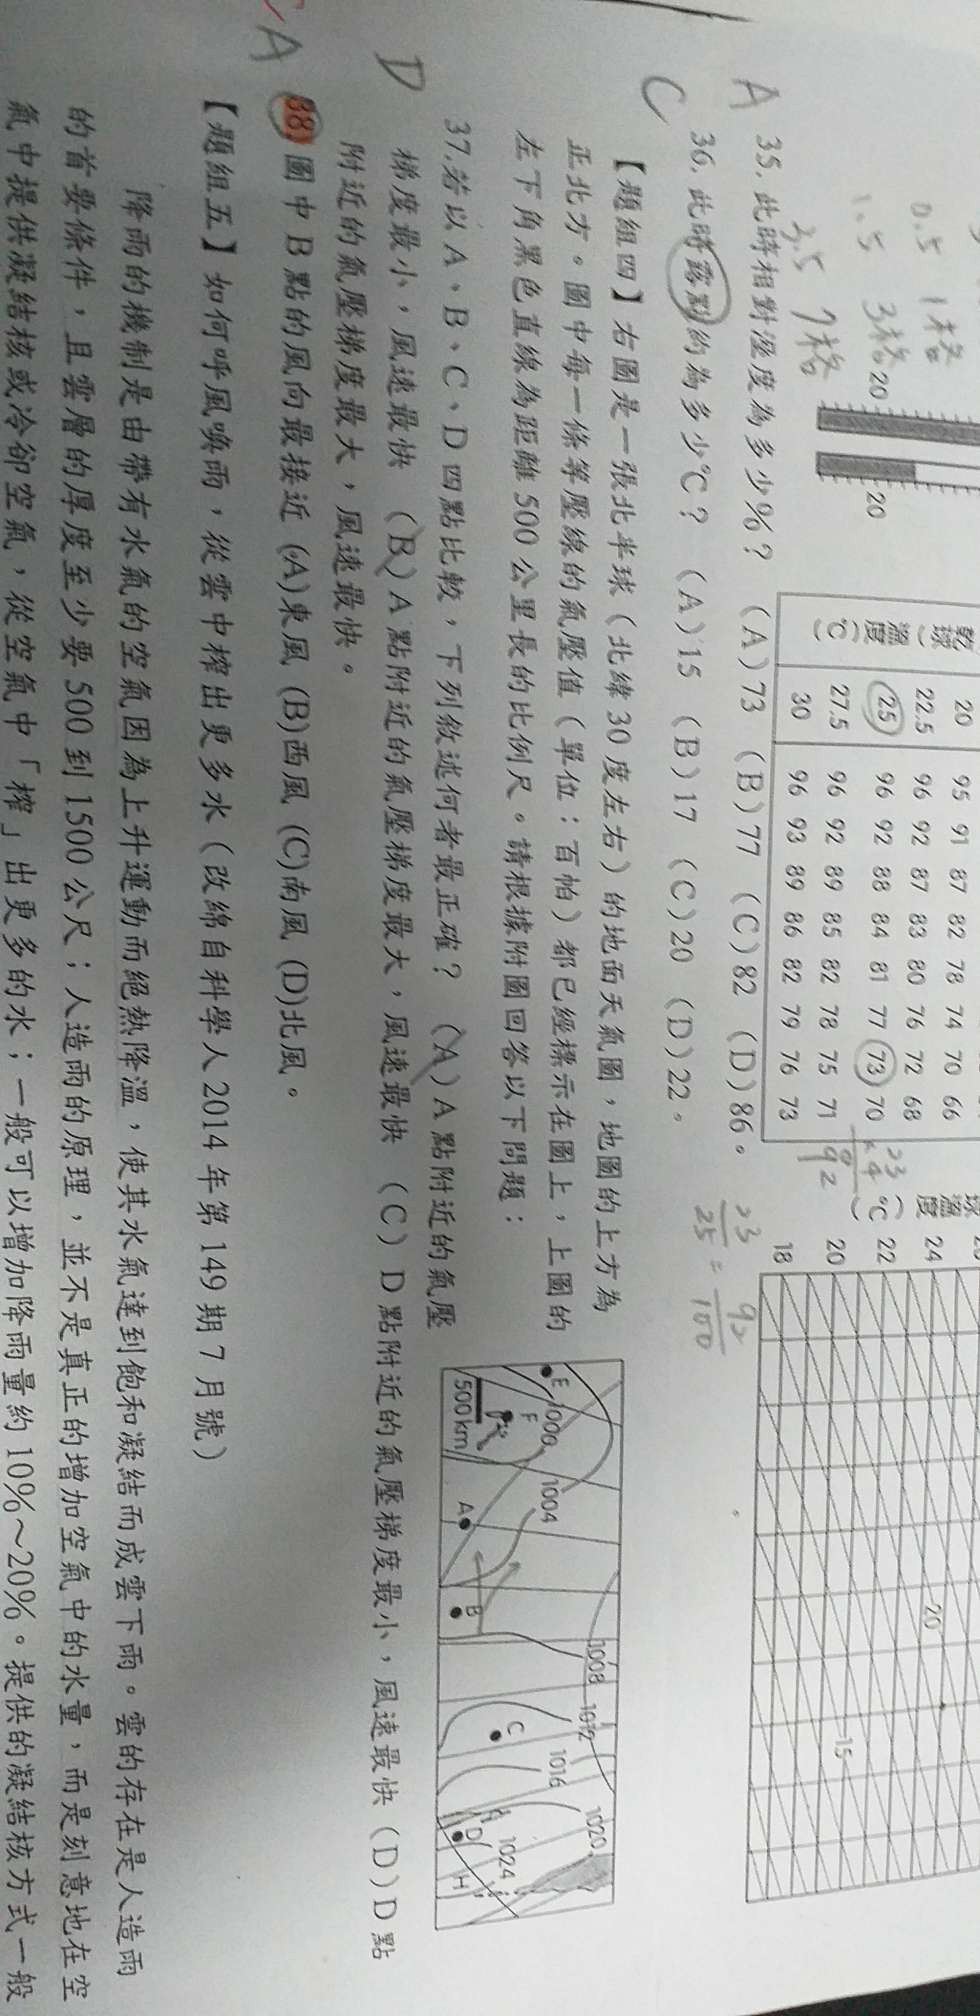 0.5 1格
1.5 3格
3.5 7格
20
20
乾球溫度(℃)
20 95 91 87 82 78 74 70 66
22.5 96 92 87 83 80 76 72 68
25 96 92 88 84 81 77 73 70
27.5 96 92 89 85 82 78 75 71
30 96 93 89 86 82 79 76 73
球溫度(℃)
24
22
20
18
20
15
A 35. 此時相對溼度為多少%? (A)73 (B)77 (C)82 (D)86。
C 36. 此時露點約為多少℃? (A)15 (B)17 (C)20 (D)22。
23/25 = 92/100
【題組四】右圖是一張北半球(北緯30度左右)的地面天氣圖,地圖的上方為
正北方。圖中每一條等壓線的氣壓值(單位:百帕)都已經標示在圖上,上圖的
左下角黑色直線為距離500公里長的比例尺。請根據附圖回答以下問題:
D 37.若以A、B、C、D四點比較,下列敘述何者最正確? (A) A點附近的氣壓
梯度最小,風速最快 (B) A點附近的氣壓梯度最大,風速最快 (C) D點附近的氣壓梯度最小,風速最快 (D) D點
附近的氣壓梯度最大,風速最快。
A 38) 圖中B點的風向最接近 (A)東風 (B)西風 (C)南風 (D)北風。
E 1000 1004 1008 1012 1016 1020 1024
F A B C D H
500 km
【題組五】如何呼風喚雨,從雲中榨出更多水(改編自科學人2014年第149期7月號)
降雨的機制是由帶有水氣的空氣因為上升運動而絕熱降溫,使其水氣達到飽和凝結而成雲下雨。雲的存在是人造雨
的首要條件,且雲層的厚度至少要500到1500公尺;人造雨的原理,並不是真正的增加空氣中的水量,而是刻意地在空
氣中提供凝結核或冷卻空氣,從空氣中「榨」出更多的水;一般可以增加降雨量約10%~20%。提供的凝結核方式一般